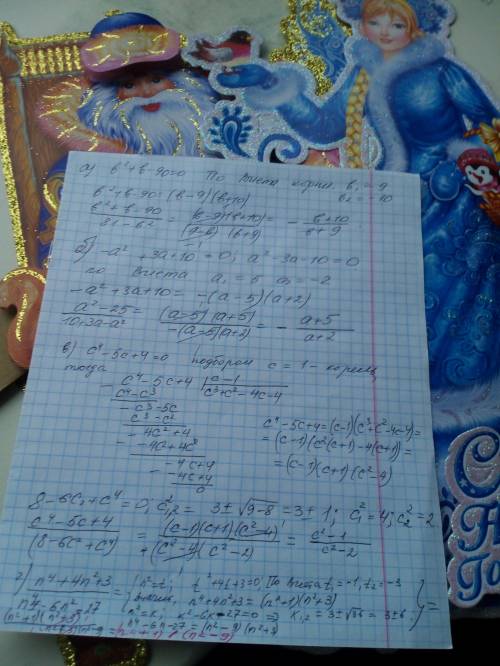 а) b²+b-90=0 По Виета корни b₁ = 9
b₂ = -10
b²+b-90=(b-9)(b+10)
(b²+b-90)/(81-b²) = (b-9)(b+10)/(9-b)(b+9) = - (b+10)/(b+9)
б) -a²+3a+10=0; a²-3a-10=0
по Виета a₁ = 5 a₂ = -2
-a²+3a+10= -(a-5)(a+2)
(a²-25)/(10+3a-a²) = (a-5)(a+5)/-(a-5)(a+2) = - (a+5)/(a+2)
в) c⁴-5c+4=0 подбором c = 1 - корень,
тогда
c⁴-5c+4 | c-1
c⁴-c³ c³+c²-4c-4
c³-5c
c³-c²
-4c²+4
-4c²+4c
-4c+4
-4c+4
0
c⁴-5c+4=(c-1)(c³+c²-4c-4)=
=(c-1)(c²(c+1)-4(c+1))=
=(c-1)(c+1)(c²-4)
8-6c²+c⁴=0; c²₁,₂ = 3±√9-8 = 3±1; c²₁=4; c²₂=2
(c⁴-5c+4)/(8-6c²+c⁴) = (c-1)(c+1)(c²-4)/(c²-4)(c²-2) = (c²-1)/(c²-2)
г) (n⁴+4n²+3)/(n⁴-6n²-27) = n²=t; t²+4t+3=0, По Виета t₁=-1, t₂=-3
n⁴+4n²+3=(n²+1)(n²+3)
n²=x; x²-6x-27=0 => x₁,₂=3±√36=3±6
n⁴-6n²-27=(n²-9)(n²+3)